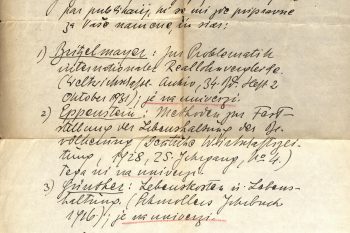 par publikacij, ki so mi jih pripravne
za Vaše namene in sicer:
1) Brigelmayer: Zur Problematik
internationaler Reallohnvergleiche
(Weltwirtschaftl. Archiv, 34. Bd. Heft 2
Oktober 1931); je na univerzi.
2) Eppenstein: Methoden zur Fest-
stellung der Lebenshaltung der Be-
völkerung (Deutsche Wirtschaftszei-
tung, 1928, 25. Jahrgang, No 4.)
Tega ni na univerzi.
3) Günther: Lebenskosten u. Lebens-
haltung. (Schmollers Jahrbuch
1916); je na univerzi.